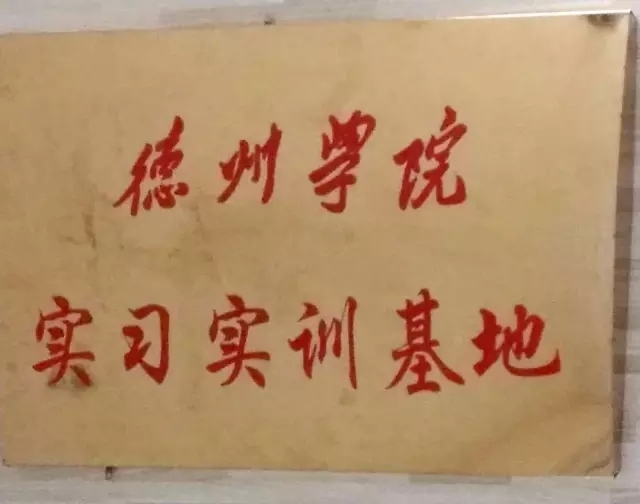 德州学院
实习实训基地